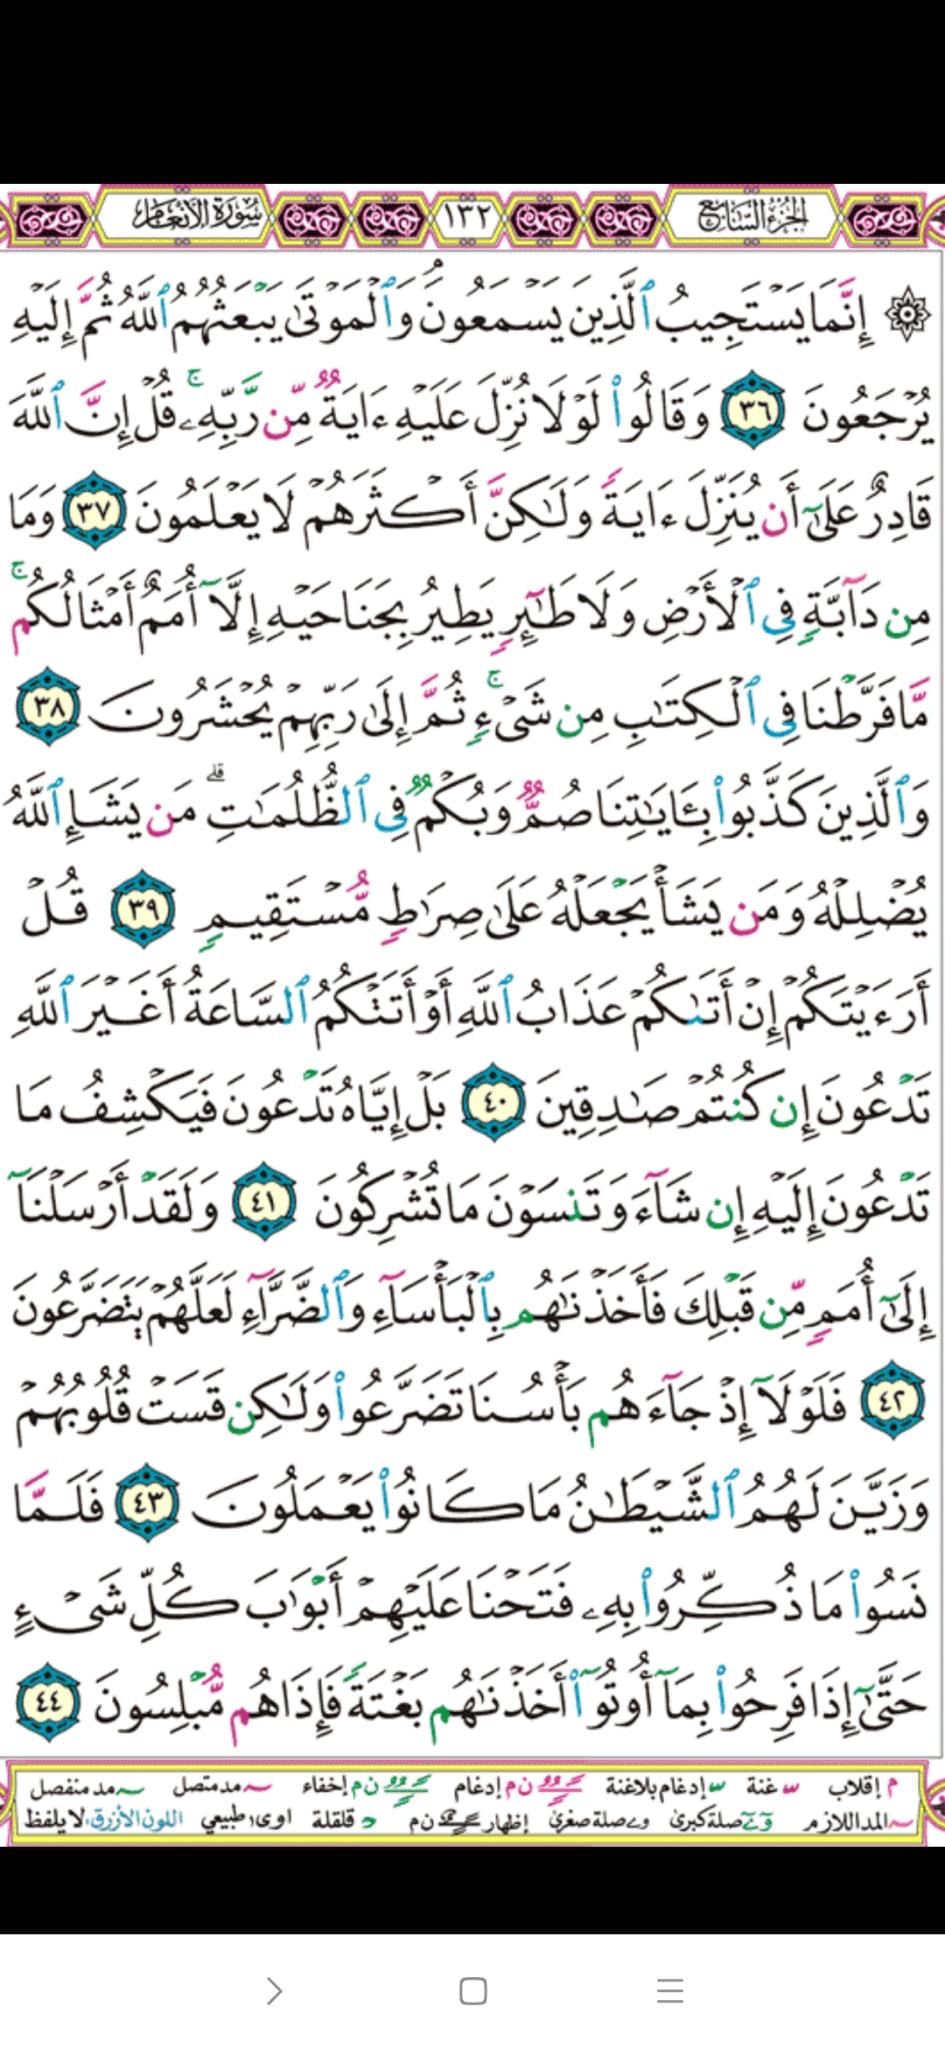 الجزء السابع ١٣٢ سورة الأنعام
۞ إِنَّمَا يَسْتَجِيبُ ٱلَّذِينَ يَسْمَعُونَۘ وَٱلْمَوْتَىٰ يَبْعَثُهُمُ ٱللَّهُ ثُمَّ إِلَيْهِ
يُرْجَعُونَ ٣٦ وَقَالُوا۟ لَوْلَا نُزِّلَ عَلَيْهِ ءَايَةٌ مِّن رَّبِّهِۦۚ قُلْ إِنَّ ٱللَّهَ
قَادِرٌ عَلَىٰٓ أَن يُنَزِّلَ ءَايَةً وَلَٰكِنَّ أَكْثَرَهُمْ لَا يَعْلَمُونَ ٣٧ وَمَا
مِن دَآبَّةٍ فِى ٱلْأَرْضِ وَلَا طَٰٓئِرٍ يَطِيرُ بِجَنَاحَيْهِ إِلَّآ أُمَمٌ أَمْثَالُكُمۚ
مَّا فَرَّطْنَا فِى ٱلْكِتَٰبِ مِن شَىْءٍۚ ثُمَّ إِلَىٰ رَبِّهِمْ يُحْشَرُونَ ٣٨
وَٱلَّذِينَ كَذَّبُوا۟ بِـَٔايَٰتِنَا صُمٌّ وَبُكْمٌ فِى ٱلظُّلُمَٰتِۗ مَن يَشَإِ ٱللَّهُ
يُضْلِلْهُ وَمَن يَشَأْ يَجْعَلْهُ عَلَىٰ صِرَٰطٍ مُّسْتَقِيمٍ ٣٩ قُلْ
أَرَءَيْتَكُمْ إِنْ أَتَىٰكُمْ عَذَابُ ٱللَّهِ أَوْ أَتَتْكُمُ ٱلسَّاعَةُ أَغَيْرَ ٱللَّهِ
تَدْعُونَ إِن كُنتُمْ صَٰدِقِينَ ٤٠ بَلْ إِيَّاهُ تَدْعُونَ فَيَكْشِفُ مَا
تَدْعُونَ إِلَيْهِ إِن شَآءَ وَتَنسَوْنَ مَا تُشْرِكُونَ ٤١ وَلَقَدْ أَرْسَلْنَآ
إِلَىٰٓ أُمَمٍ مِّن قَبْلِكَ فَأَخَذْنَٰهُم بِٱلْبَأْسَآءِ وَٱلضَّرَّآءِ لَعَلَّهُمْ يَتَضَرَّعُونَ
٤٢ فَلَوْلَآ إِذْ جَآءَهُم بَأْسُنَا تَضَرَّعُوا۟ وَلَٰكِن قَسَتْ قُلُوبُهُمْ
وَزَيَّنَ لَهُمُ ٱلشَّيْطَٰنُ مَا كَانُوا۟ يَعْمَلُونَ ٤٣ فَلَمَّا
نَسُوا۟ مَا ذُكِّرُوا۟ بِهِۦ فَتَحْنَا عَلَيْهِمْ أَبْوَٰبَ كُلِّ شَىْءٍ
حَتَّىٰٓ إِذَا فَرِحُوا۟ بِمَآ أُوتُوٓا۟ أَخَذْنَٰهُم بَغْتَةً فَإِذَا هُم مُّبْلِسُونَ ٤٤
م إقلاب غنة إدغام بلاغنة ن م إدغام ن م إخفاء مد متصل مد منفصل
المد اللازم صلة كبرى صلة صغرى إظهار ن م قلقلة اوى طبيعي اللون الأزرق: لا يلفظ